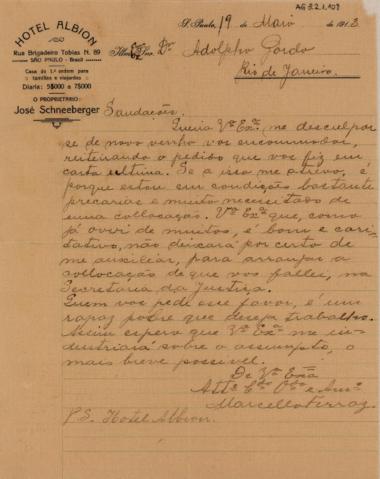 AG 3.2.1.409
HOTEL ALBION
Rua Brigadeiro Tobias N. 89
SÃO PAULO - Brasil
Casa de 1.ª ordem para
familias e viajantes
Diaria: 5$000 a 7$000
O PROPRIETARIO:
José Schneeberger
S. Paulo, 19 de Maio de 1913
Illmo Exmo Snr. Dr. Adolpho Gordo
Rio de Janeiro.
Saudações.
Queira Vª Exª, me desculpar
se de novo venho vos encommodar,
reiterando o pedido que vos fiz em
carta ultima. Se a isso me atrevo, é
porque estou em condições bastante
precarias e muito necessitado de
uma collocação. Vª Exª que, como
já ouvi de muitos, é bom e cari-
tativo, não deixará por certo de
me auxiliar, para arranjar a
collocação de que vos fallei, na
Secretaria da Justiça.
Quem vos pede esse favor, é um
rapaz pobre que deseja trabalho.
Assim espero que Vª Exª me in-
dustriará sobre o assumpto, o
mais breve possivel.
De Vª Exª
Attº Crº Obº e Amº
Marcello Ferraz
P.S. Hotel Albion.